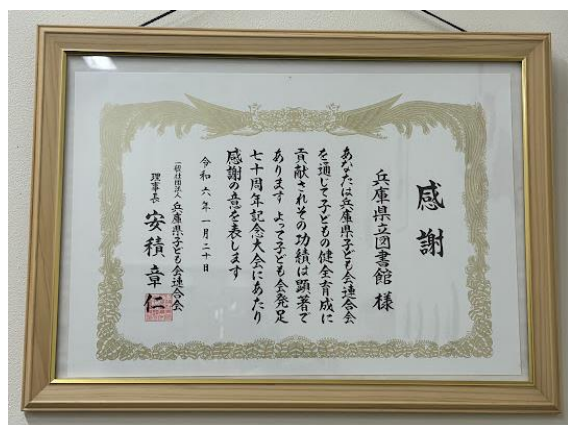 感謝
兵庫県立図書館 様
あなたは兵庫県子ども会連合会
を通じて子どもの健全育成に
貢献されその功績は顕著で
あります よって子ども会発足
七十周年記念大会にあたり
感謝の意を表します
令和六年一月二十日
一般社団法人 兵庫県子ども会連合会
理事長 安積章仁